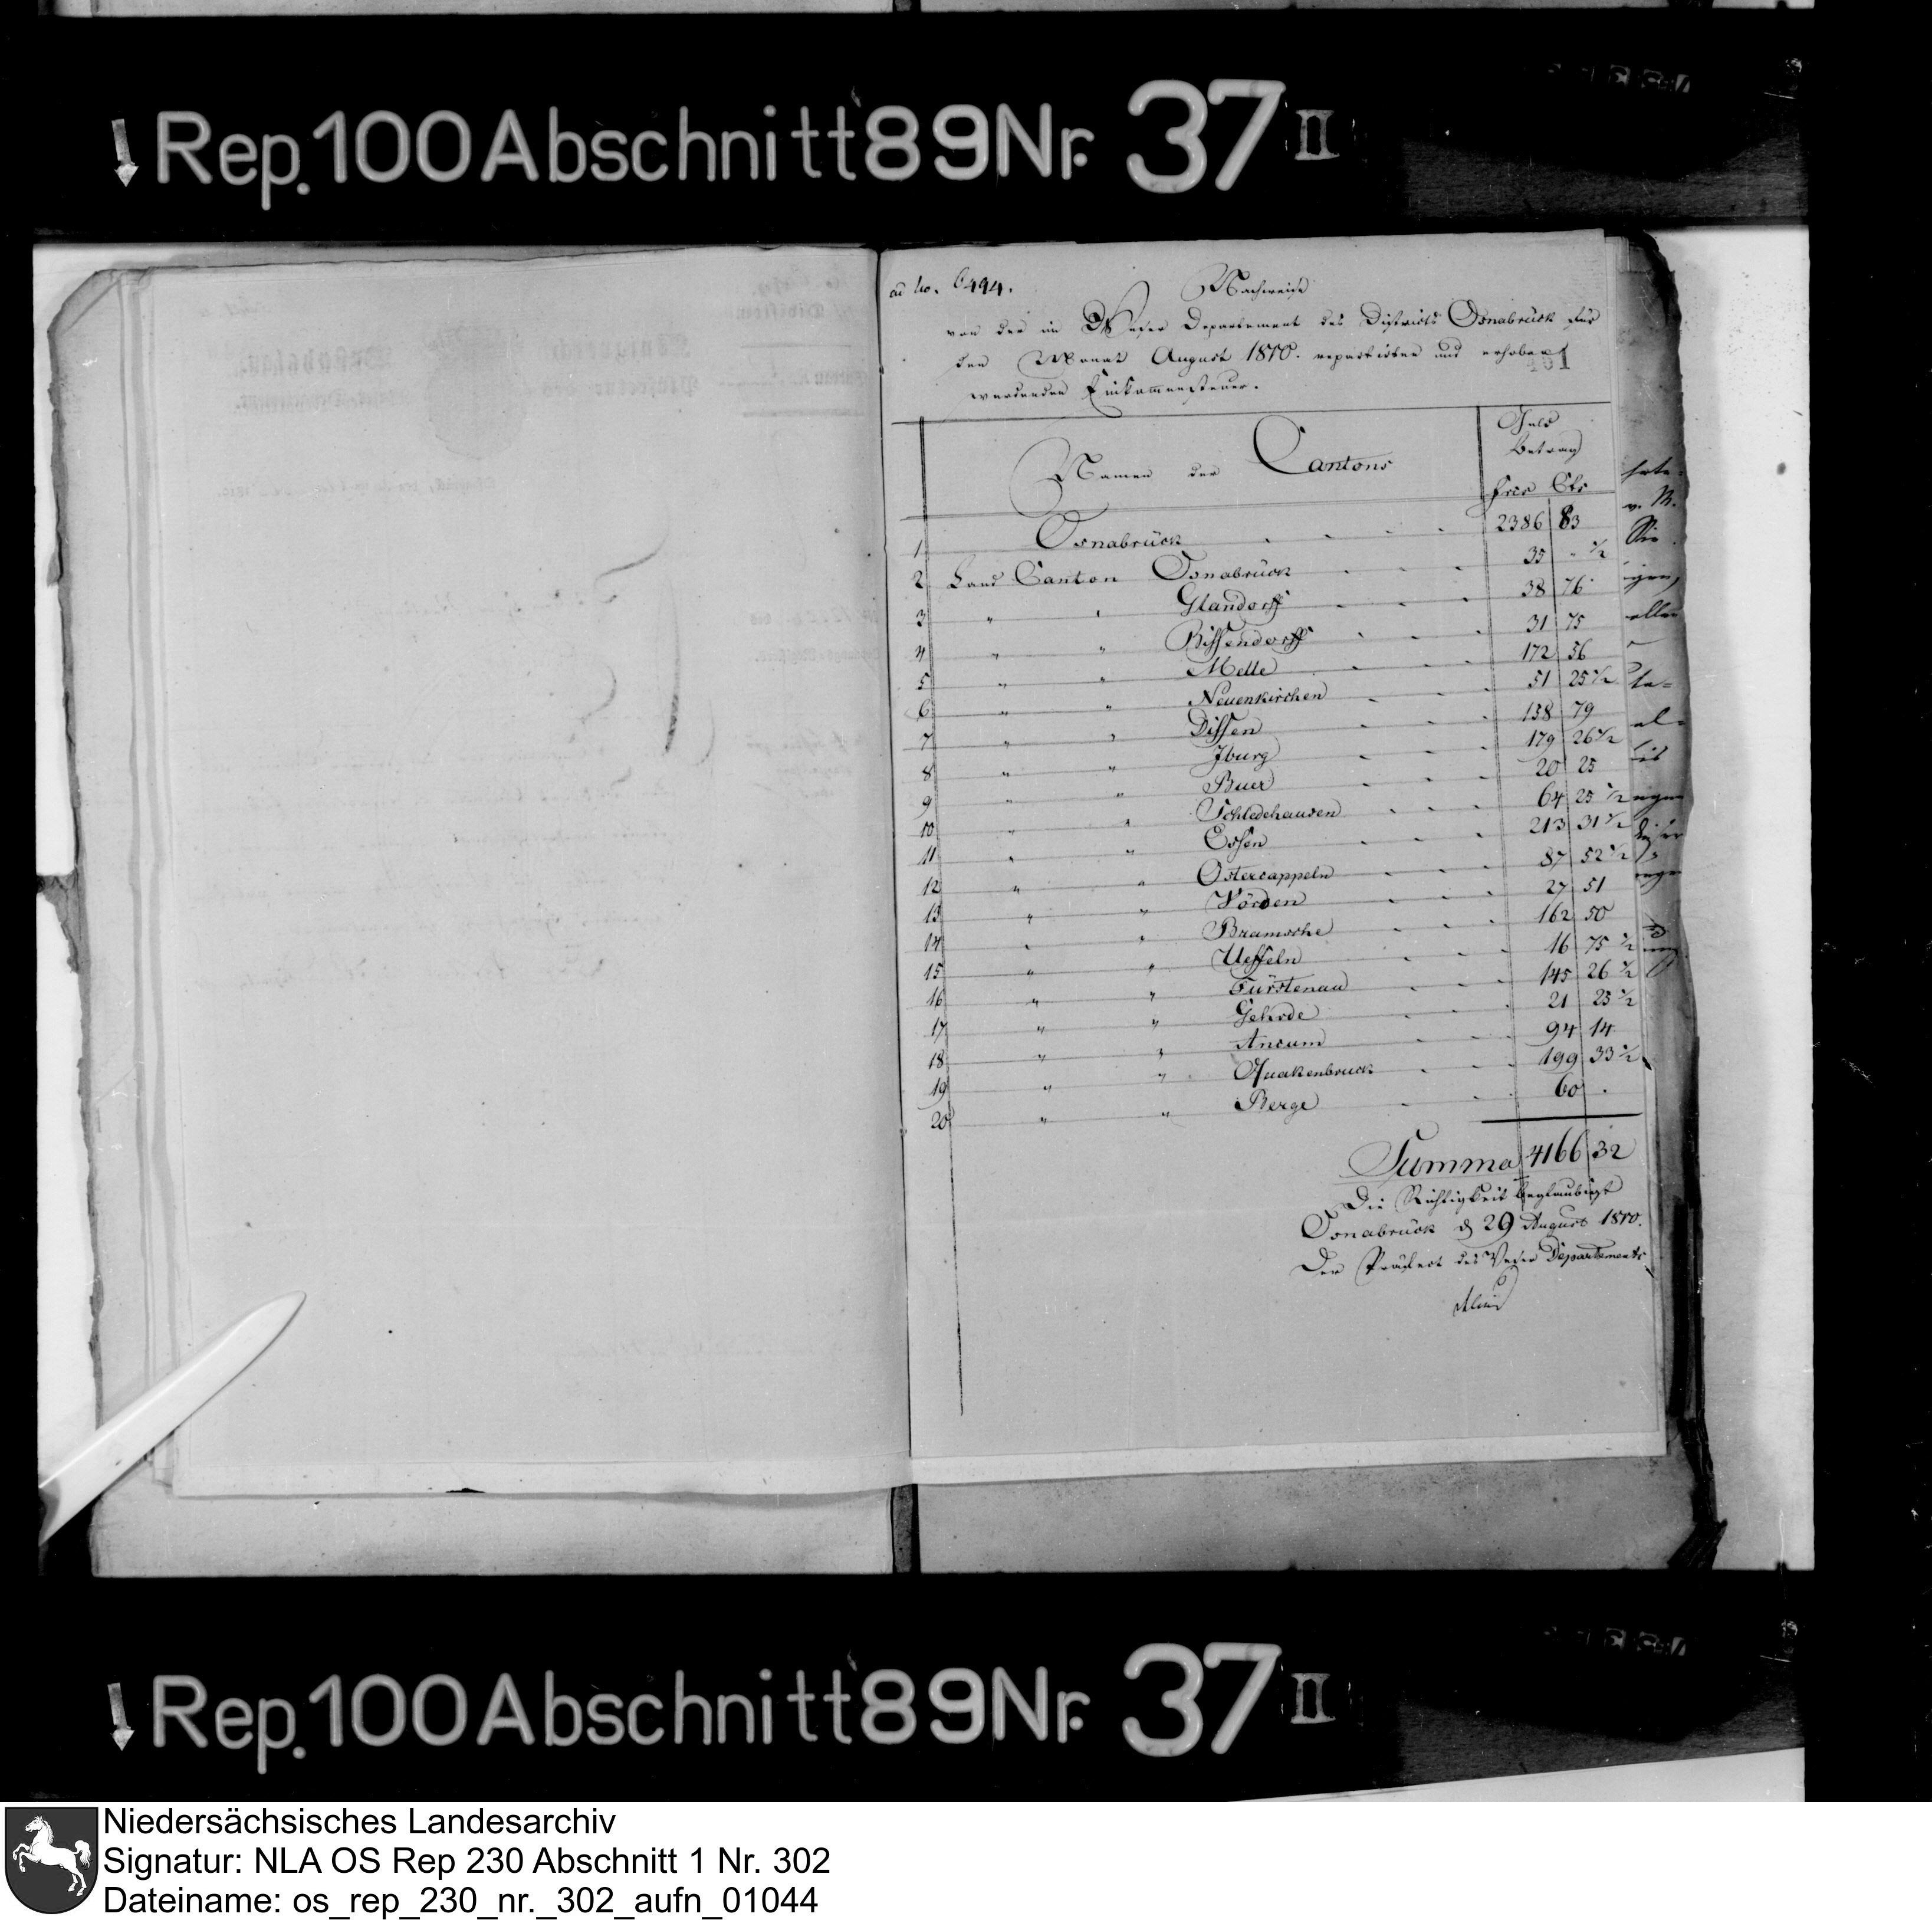 Rep. 100 Abschnitt 89 Nr. 37 II
ad No. 6494.
Nachweise
von der im Weser Departement des Districts Osnabrück für
den Monat August 1810. repartirten und erhoben
werdenden Einkommensteuer.
401
Namen der Cantons
Geld
Betrag
Frcs Cts
1 Osnabrück 2386 83
2 Land Canton Osnabrück 35 " 1/2
3 " " Glandorff 38 76
4 " " Bissendorff 31 75
5 " " Melle 172 56
6 " " Neuenkirchen 51 25 1/2
7 " " Dissen 158 79
8 " " Iburg 179 26 1/2
9 " " Buer 20 25
10 " " Schledehausen 64 25 1/2
11 " " Essen 213 31 1/2
12 " " Ostercappeln 87 52 1/2
13 " " Vörden 27 51
14 " " Bramsche 162 50
15 " " Ueffeln 16 75 1/2
16 " " Fürstenau 145 26 1/2
17 " " Gehrde 21 25 1/2
18 " " Ancum 94 14
19 " " Quakenbruck 199 33 1/2
20 " " Berge 60 .
Summa 4166 32
Die Richtigkeit beglaubigt
Osnabrück d 29 August 1810.
Der Präfect des Weser Departements
Rep. 100 Abschnitt 89 Nr. 37 II
Niedersächsisches Landesarchiv
Signatur: NLA OS Rep 230 Abschnitt 1 Nr. 302
Dateiname: os_rep_230_nr._302_aufn_01044